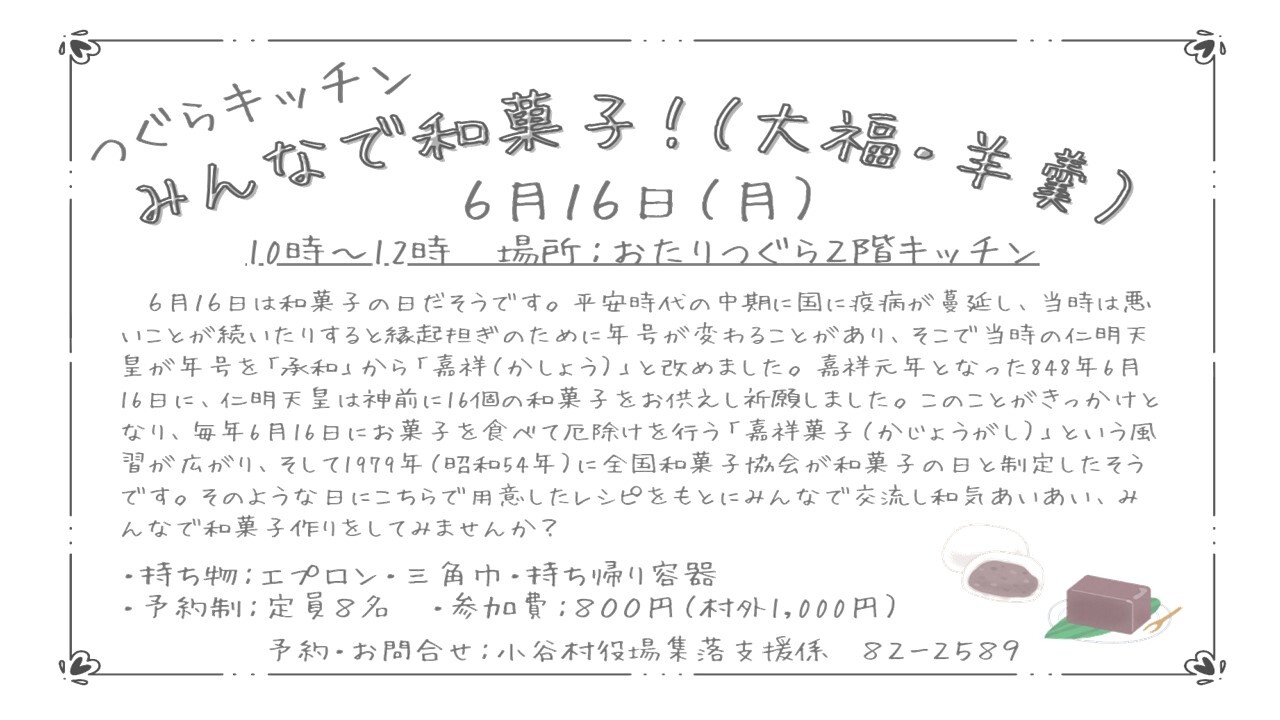 つぐらキッチン
みんなで和菓子！（大福・羊羹）
6月16日（月）
10時～12時　場所；おたりつぐら2階キッチン
6月16日は和菓子の日だそうです。平安時代の中期に国に疫病が蔓延し、当時は悪
いことが続いたりすると縁起担ぎのために年号が変わることがあり、そこで当時の仁明天
皇が年号を「承和」から「嘉祥（かしょう）」と改めました。嘉祥元年となった848年6月
16日に、仁明天皇は神前に16個の和菓子をお供えし祈願しました。このことがきっかけと
なり、毎年6月16日にお菓子を食べて厄除けを行う「嘉祥菓子（かじょうがし）」という風
習が広がり、そして1979年（昭和54年）に全国和菓子協会が和菓子の日と制定したそう
です。そのような日にこちらで用意したレシピをもとにみんなで交流し和気あいあい、み
んなで和菓子作りをしてみませんか？
・持ち物；エプロン・三角巾・持ち帰り容器
・予約制；定員8名　・参加費；800円（村外1,000円）
予約・お問合せ；小谷村役場集落支援係　82-2589